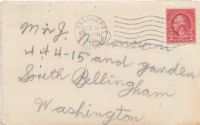 Mr J. Donovan
444-15 and garden
South Bellingham
Washington